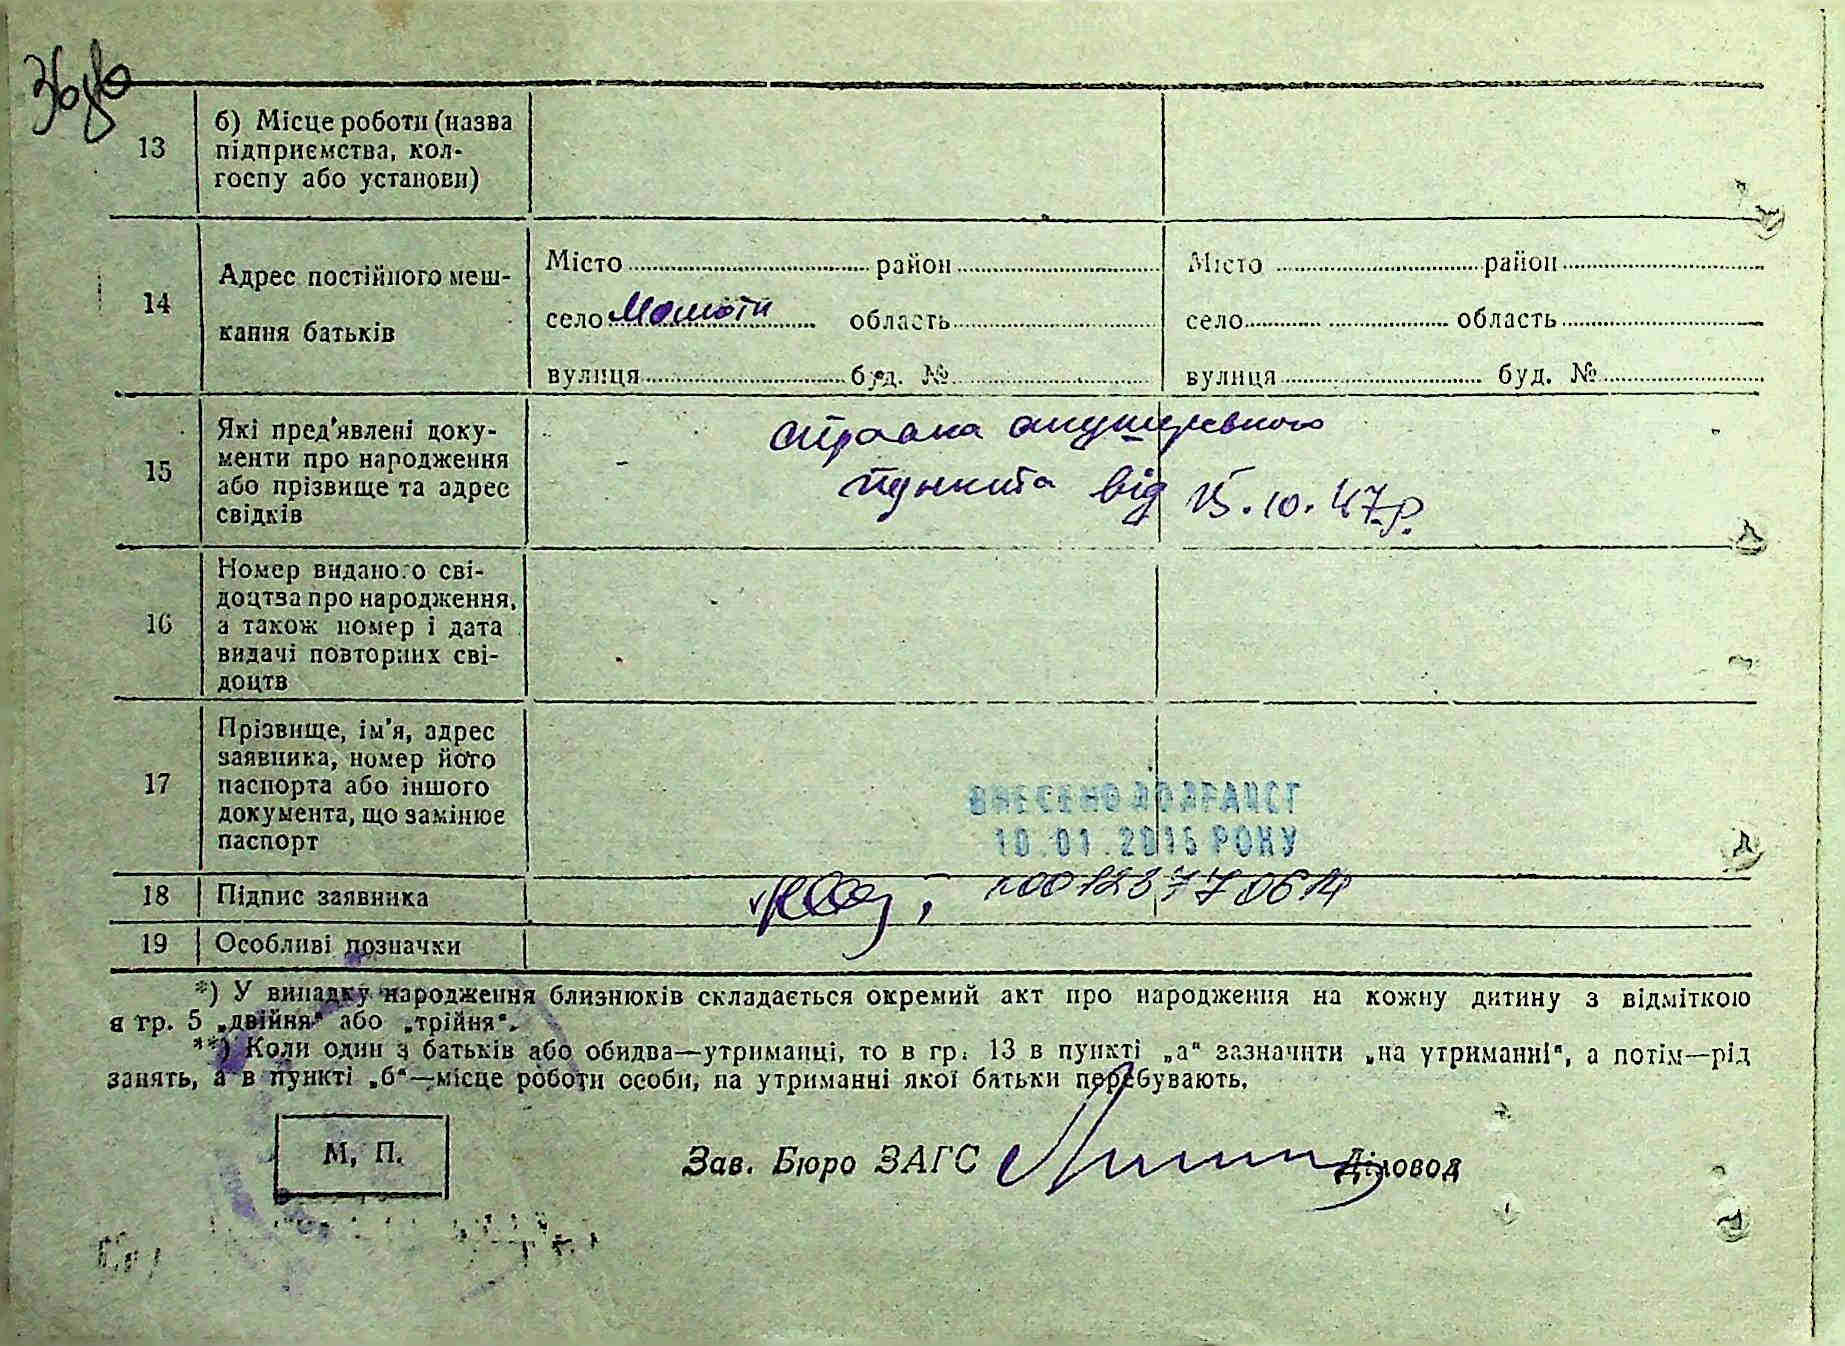 13
б) Місце роботи (назва
підприємства, кол-
госпу або установи)
14
Адрес постійного меш-
кання батьків
Місто район
село область
вулиця буд. №
Місто район
село область
вулиця буд. №
15
Які пред'явлені доку-
менти про народження
або прізвище та адрес
свідків
справка акушерського
пункта від 15.10.47 р.
16
Номер виданого сві-
доцтва про народження,
а також номер і дата
видачі повторних сві-
доцтв
17
Прізвище, ім'я, адрес
заявника, номер його
паспорта або іншого
документа, що замінює
паспорт
ВНЕСЕНО ДО ДРАЦСГ
10.01.2015 РОКУ
18
Підпис заявника
00128770614
19
Особливі позначки
*) У випадку народження близнюків складається окремий акт про народження на кожну дитину з відміткою
в гр. 5 „двійня“ або „трійня“.
**) Коли один з батьків або обидва—утриманці, то в гр. 13 в пункті „а“ зазначити „на утриманні“, а потім—рід
занять, а в пункті „б“—місце роботи особи, на утриманні якої батьки перебувають.
М. П.
Зав. Бюро ЗАГС Діловод